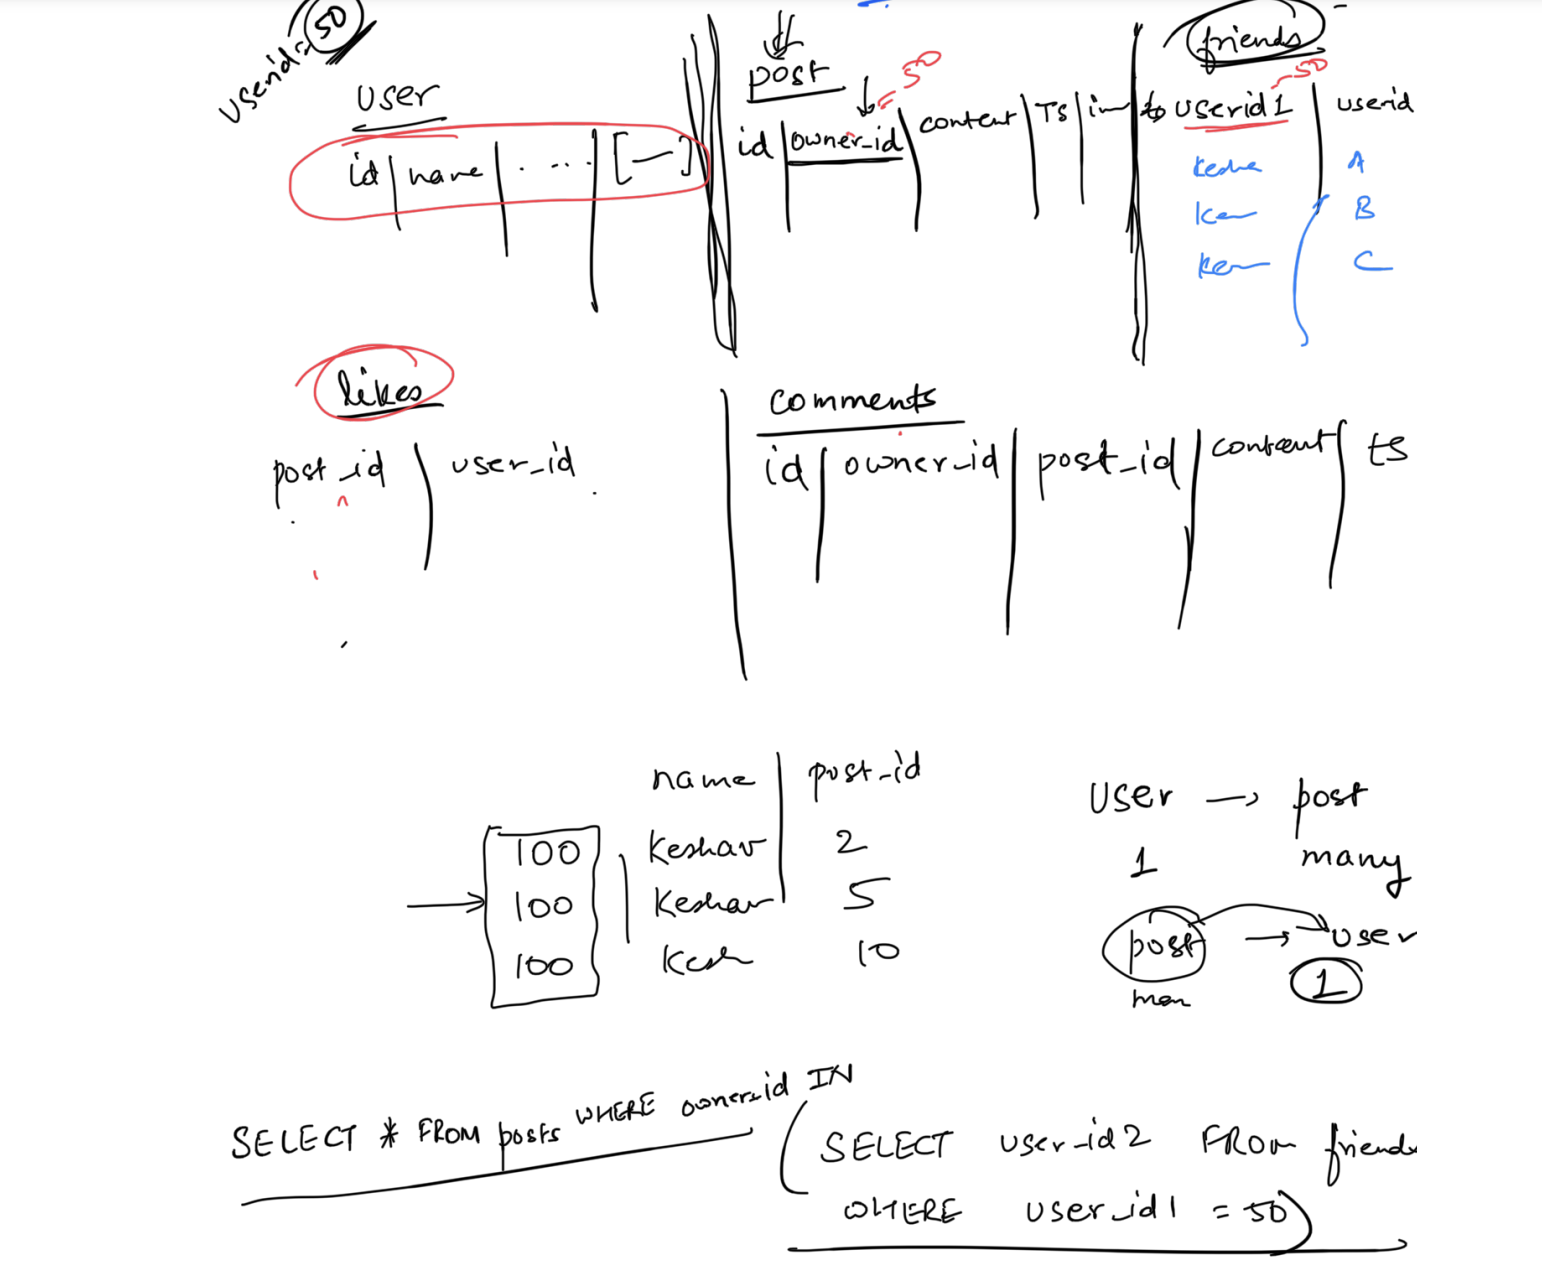 userid = 50
user
id | name | . ... | [—]
post
= 50
id | owner_id | content | TS |
friends
50
userid1 | userid
A
B
C
likes
post_id | user_id
comments
id | owner_id | post_id | content | ts
name | post_id
100 | Keshav 2
100 | Keshav 5
100 | Kesh 10
user → post
1 many
post → user
1
SELECT * FROM posts WHERE owner_id IN
(SELECT user_id2 FROM friends
WHERE user_id1 = 50)